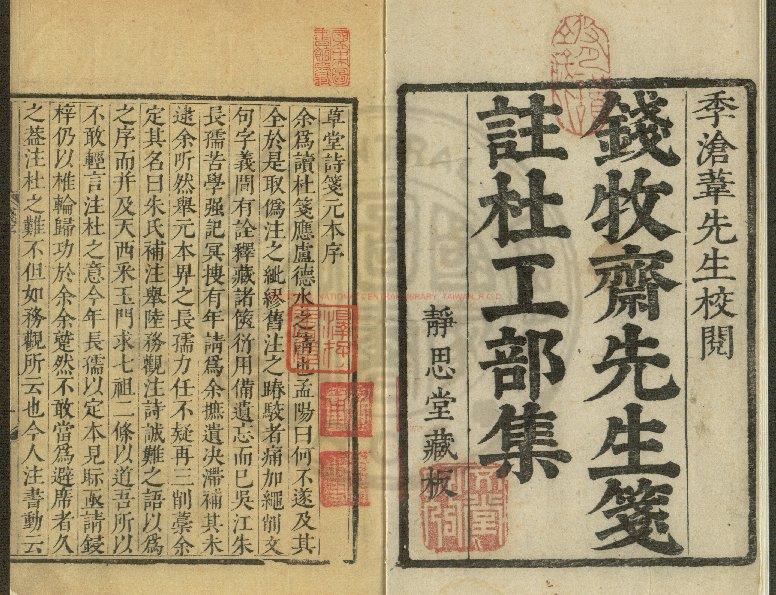 季滄葦先生校閱
錢牧齋先生箋
註杜工部集
靜思堂藏板
草堂詩箋元本序
余爲讀杜箋應盧德水之請也孟陽曰何不遂及其
全於是取僞注之紕繆舊注之踳駮者痛加繩削文
句字義間有詮釋藏諸篋衍用備遺忘而已吳江朱
長孺苦學强記冥搜有年請爲余摭遺决滯補其未
逮余听然舉元本畀之長孺力任不疑再三削藁余
定其名曰朱氏補注舉陸務觀注詩誠難之語以爲
之序而并及天西采玉門求七祖二條以道吾所以
不敢輕言注杜之意今年長孺以定本見眎亟請鋟
梓仍以椎輪歸功於余余蹵然不敢當爲避席者久
之葢注杜之難不但如務觀所云也今人注書動云
NATIONAL CENTRAL LIBRARY, TAIWAN, R.O.C.